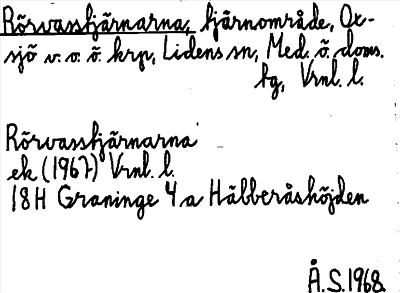 Rörvasstjärnarna, tjärnområde, Ox-
sjö v. o. ö. krp, Lidens sn, Med. ö. doms.
tg, Vrnl. l.
Rörvasstjärnarna
ek (1967) Vrnl. l.
18H Graninge 4 a Hälberåshöjden
Å.S. 1968.